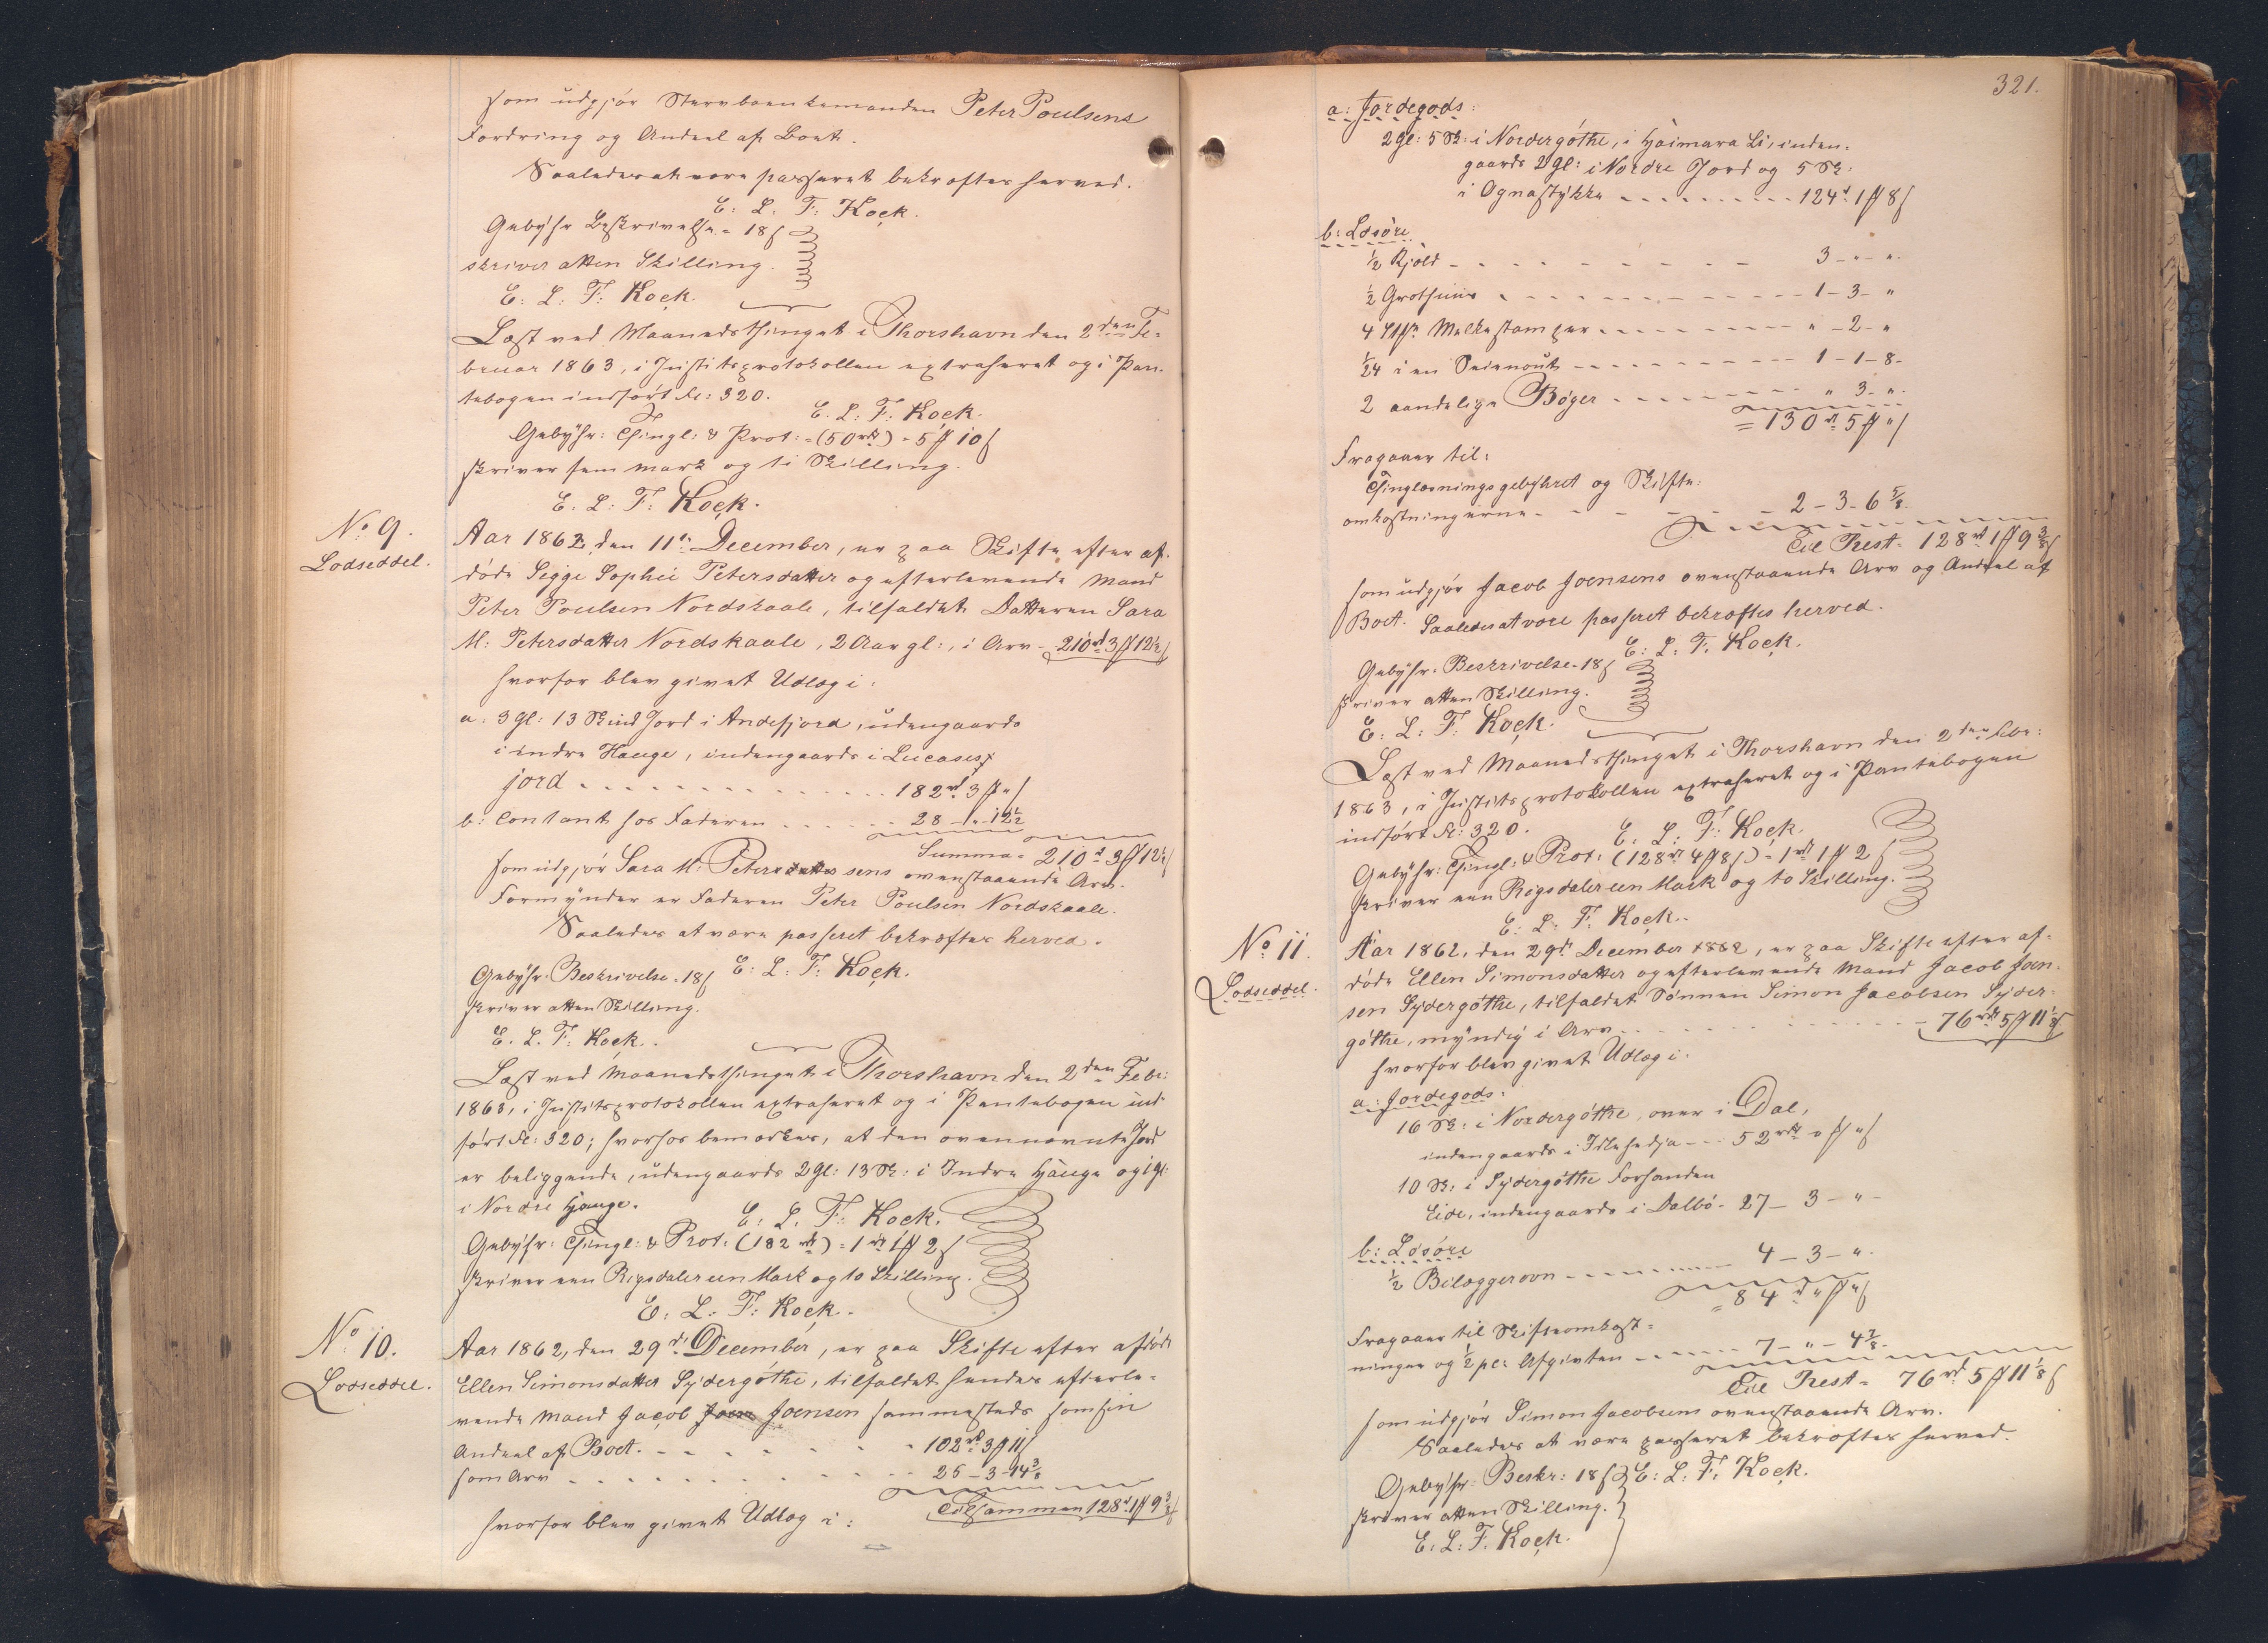 som udgjör Stervboenkemanden Peter Poulsens
Fordring og Andeel af Boet.
Saaledes at være passeret bekræftes herved.
E: L: F: Kock.
Gebyhr Beskrivelse = 18 ß
skriver atten Skilling.
E: L: F: Kock.
Læst ved Maanedsthinget i Thorshavn den 2den Fe-
bruar 1863, i Justitsprotokollen extraheret og i Pan-
tebogen indført Fol: 320.
E. L: F: Kock.
Gebyhr: Thingl: & Prot: = (50 rd) = 5 ℳ 10 ß
skriver fem mark og ti Skilling.
E. L: F: Kock.
No 9.
Lodseddel.
Aar 1862, den 11te December, er paa Skifte efter af-
døde Sigge Sophie Petersdatter og efterlevende Mand
Peter Poulsen Nordskaale, tilfaldet Datteren Sara
M: Petersdatter Nordskaale, 2 Aar gl:, i Arv - 210 rd 3 ℳ 12½ ß
hvorfor blev givet Udlæg i:
a: 3 Gl: 13 Skind Jord i Andefjord, udengaards
i indre Hauge, indengaards i Lucases
jord . . . . . 182 rd 3 ℳ " ß
b: Contant hos Faderen . . . . . 28 - " - 12½
Summa = 210 rd 3 ℳ 12½ ß
som udgjør Sara M: Petersdatter sens ovenstaaende Arv.
Formynder er Faderen Peter Poulsen Nordskaale.
Saaledes at være passeret bekræftes herved.
Gebyhr. Beskrivelse. 18 ß E: L: F: Kock.
skriver atten Skilling.
E. L. F: Kock.
Læst ved Maanedsthinget i Thorshavn den 2den Febr:
1863, i Justitsprotokollen extraheret og i Pantebogen ind-
ført Fol: 320; hvorhos bemærkes, at den ovennævnte Jord
er beliggende, udengaards 2 Gl: 13 Sk: i Indre Hauge og 1 Gl:
i Nordre Hauge.
E: L. F: Kock.
Gebyhr: Thingl: & Prot: (182 rd) = 1 rd 1 ℳ 2 ß
skriver een Rigsdaler een Mark og to Skilling.
E: L: F: Kock.
No 10.
Lodseddel.
Aar 1862, den 29de December, er paa Skifte efter afdøde
Ellen Simonsdatter Sydergöthe, tilfaldet hendes efterle-
vende Mand Jacob Joen Joensen sammesteds som sin
Andeel af Boet. - - - - 102 rd 3 ℳ 11 ß
som Arv . . . . . 25 - 3 - 14⅜
Tilsammen 128 rd 1 ℳ 9⅜ ß
hvorfor blev givet Udlæg i:
321.
a: Jordegods:
2 Gl: 5 Sk: i Nordergöthe, i Haimara Li, inden-
gaards 2 Gl: i Nordre Jord og 5 Sk:
i Agnastykke . . . . . 124 rd 1 ℳ 8 ß
b: Løsöre
½ Kjøld - - - - - 3 - " - "
½ Grothuus . - - - - 1 - 3 - "
4 Stk: Melkestamper . . . . " - 2 - "
1/24 i en Seienout - - - - 1 - 1 - 8 -
2 aandelige Bøger . - - - " 3 - "
= 130 rd 5 ℳ " ß
Fragaaer til:
Thinglæsningsgebyhret og Skifte-
omkostningerne - - - - 2 - 3 - 6⅝
Til Rest = 128 rd 1 ℳ 9⅜ ß
som udgjør Jacob Joensens ovenstaaende Arv og Andeel af
Boet. Saaledes at være passeret bekræftes herved.
E: L. F. Kock.
Gebyhr. Beskrivelse = 18 ß
skriver atten Skilling.
E: L: F: Kock.
Læst ved Maanedsthinget i Thorshavn den 2den Febr:
1863, i Justitsprotokollen extraheret og i Pantebogen
indført Fol: 320.
E. L: F: Kock.
Gebyhr: Thingl: & Prot: (128 rd 4 ℳ 8 ß) = 1 rd 1 ℳ 2 ß
skriver een Rigsdaler een Mark og to Skilling.
E: L: F: Kock.
No 11.
Lodseddel.
Aar 1862, den 29de December 1862, er paa Skifte efter af-
døde Ellen Simonsdatter og efterlevende Mand Jacob Joen-
sen Sydergöthe, tilfaldet Sönnen Simon Jacobsen Syder-
göthe, myndig i Arv . . . . . 76 rd 5 ℳ 11⅛ ß
hvorfor blev givet Udlæg i:
a: Jordegods:
16 Sk: i Nordergöthe, over i Dal,
indengaards i - - 52 rd " ℳ " ß
10 Sk: i Sydergöthe Forhanden
Eide, indengaards i Dalbø - 27 - 3 - " -
b: Løsöre
½ Bilæggerovn - - - - 4 - 3 - "
= 84 rd " ℳ " ß
Fragaaer til Skifteomkost-
ninger og ½ pc: Afgivten - - - - 7 - " - 4⅞
Til Rest = 76 rd 5 ℳ 11⅛ ß
som udgjør Simon Jacobsens ovenstaaende Arv.
Saaledes at være passeret bekræftes herved.
Gebyhr: Beskr: 18 ß E: L: F: Kock.
skriver atten Skilling.
E: L: F: Kock.